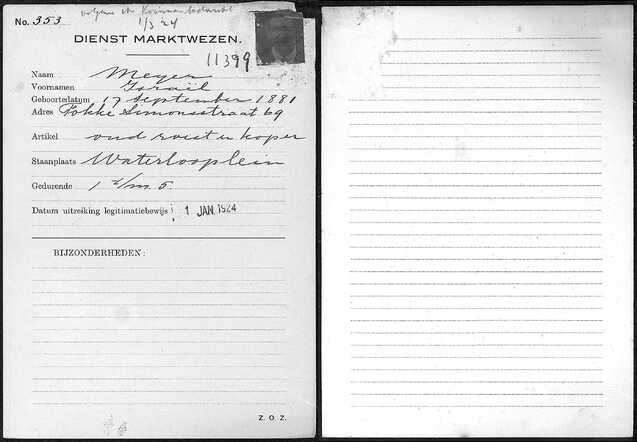 No. 353
1/3 24
DIENST MARKTWEZEN.
11399
Naam Meyer
Voornamen Israël
Geboortedatum 17 September 1881
Adres Fokke Simonsstraat 69
Artikel oud roest en koper
Staanplaats Waterlooplein
Gedurende 1 t/m 5.
Datum uitreiking legitimatiebewijs 1 JAN. 1924
BIJZONDERHEDEN:
Z. O. Z.